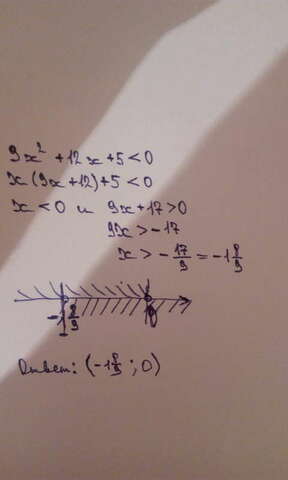 9x² + 12x + 5 < 0
x(9x + 12) + 5 < 0
x < 0 и 9x + 17 > 0
9x > - 17
x > - 17/9 = -1 8/9
-1 8/9 0
Ответ: (-1 8/9 ; 0)